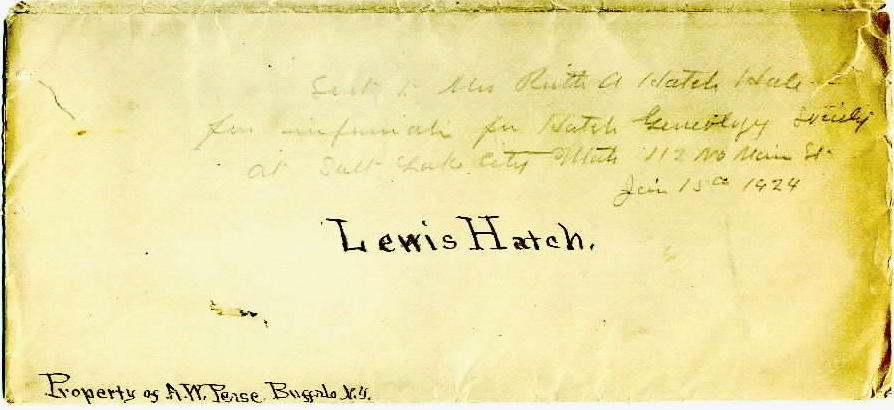 Sent to Mrs Ruth A Hatch Hale
for information for Hatch Genealogy Society
at Salt Lake City Utah 112 No Main St.
Jan 15 1924
Lewis Hatch.
Property of A.W. Pease. Buffalo N.Y.